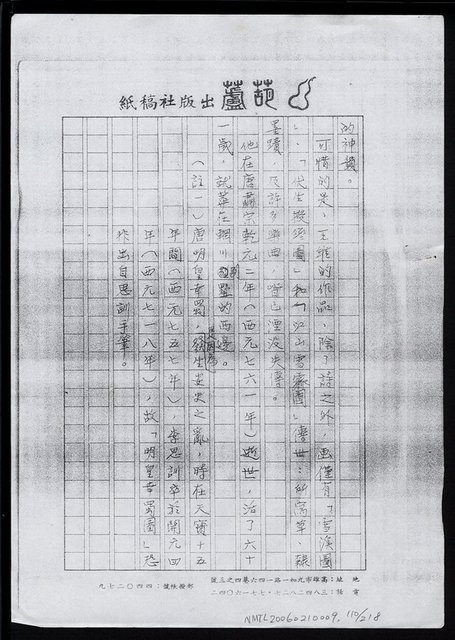 葫蘆出版社稿紙
的神韻。
可惜的是,王維的作品,除了詩之外,画僅有「雪溪圖
」、「伏生授經圖」和「江山雪霽圖」傳世;所寫草、隸
墨蹟,及許多樂曲,皆已湮没失傳。
他在唐肅宗乾元二年(西元七六一年)逝世,活了六十
一歲,就葬在輞川別墅的西邊。
(註一)唐明皇幸蜀,是因為發生安史之亂,時在天寶十五
年間(西元七五七年),李思訓卒於開元四
年(西元七一八年),故「明皇幸蜀圖」恐
非出自思訓手筆。
地址:高雄市九如一路一四六巷四之三號
電話:三八四二八二七・七七一六〇四二
郵撥帳號:四四〇二七九
NMTL20060210009, 110/218